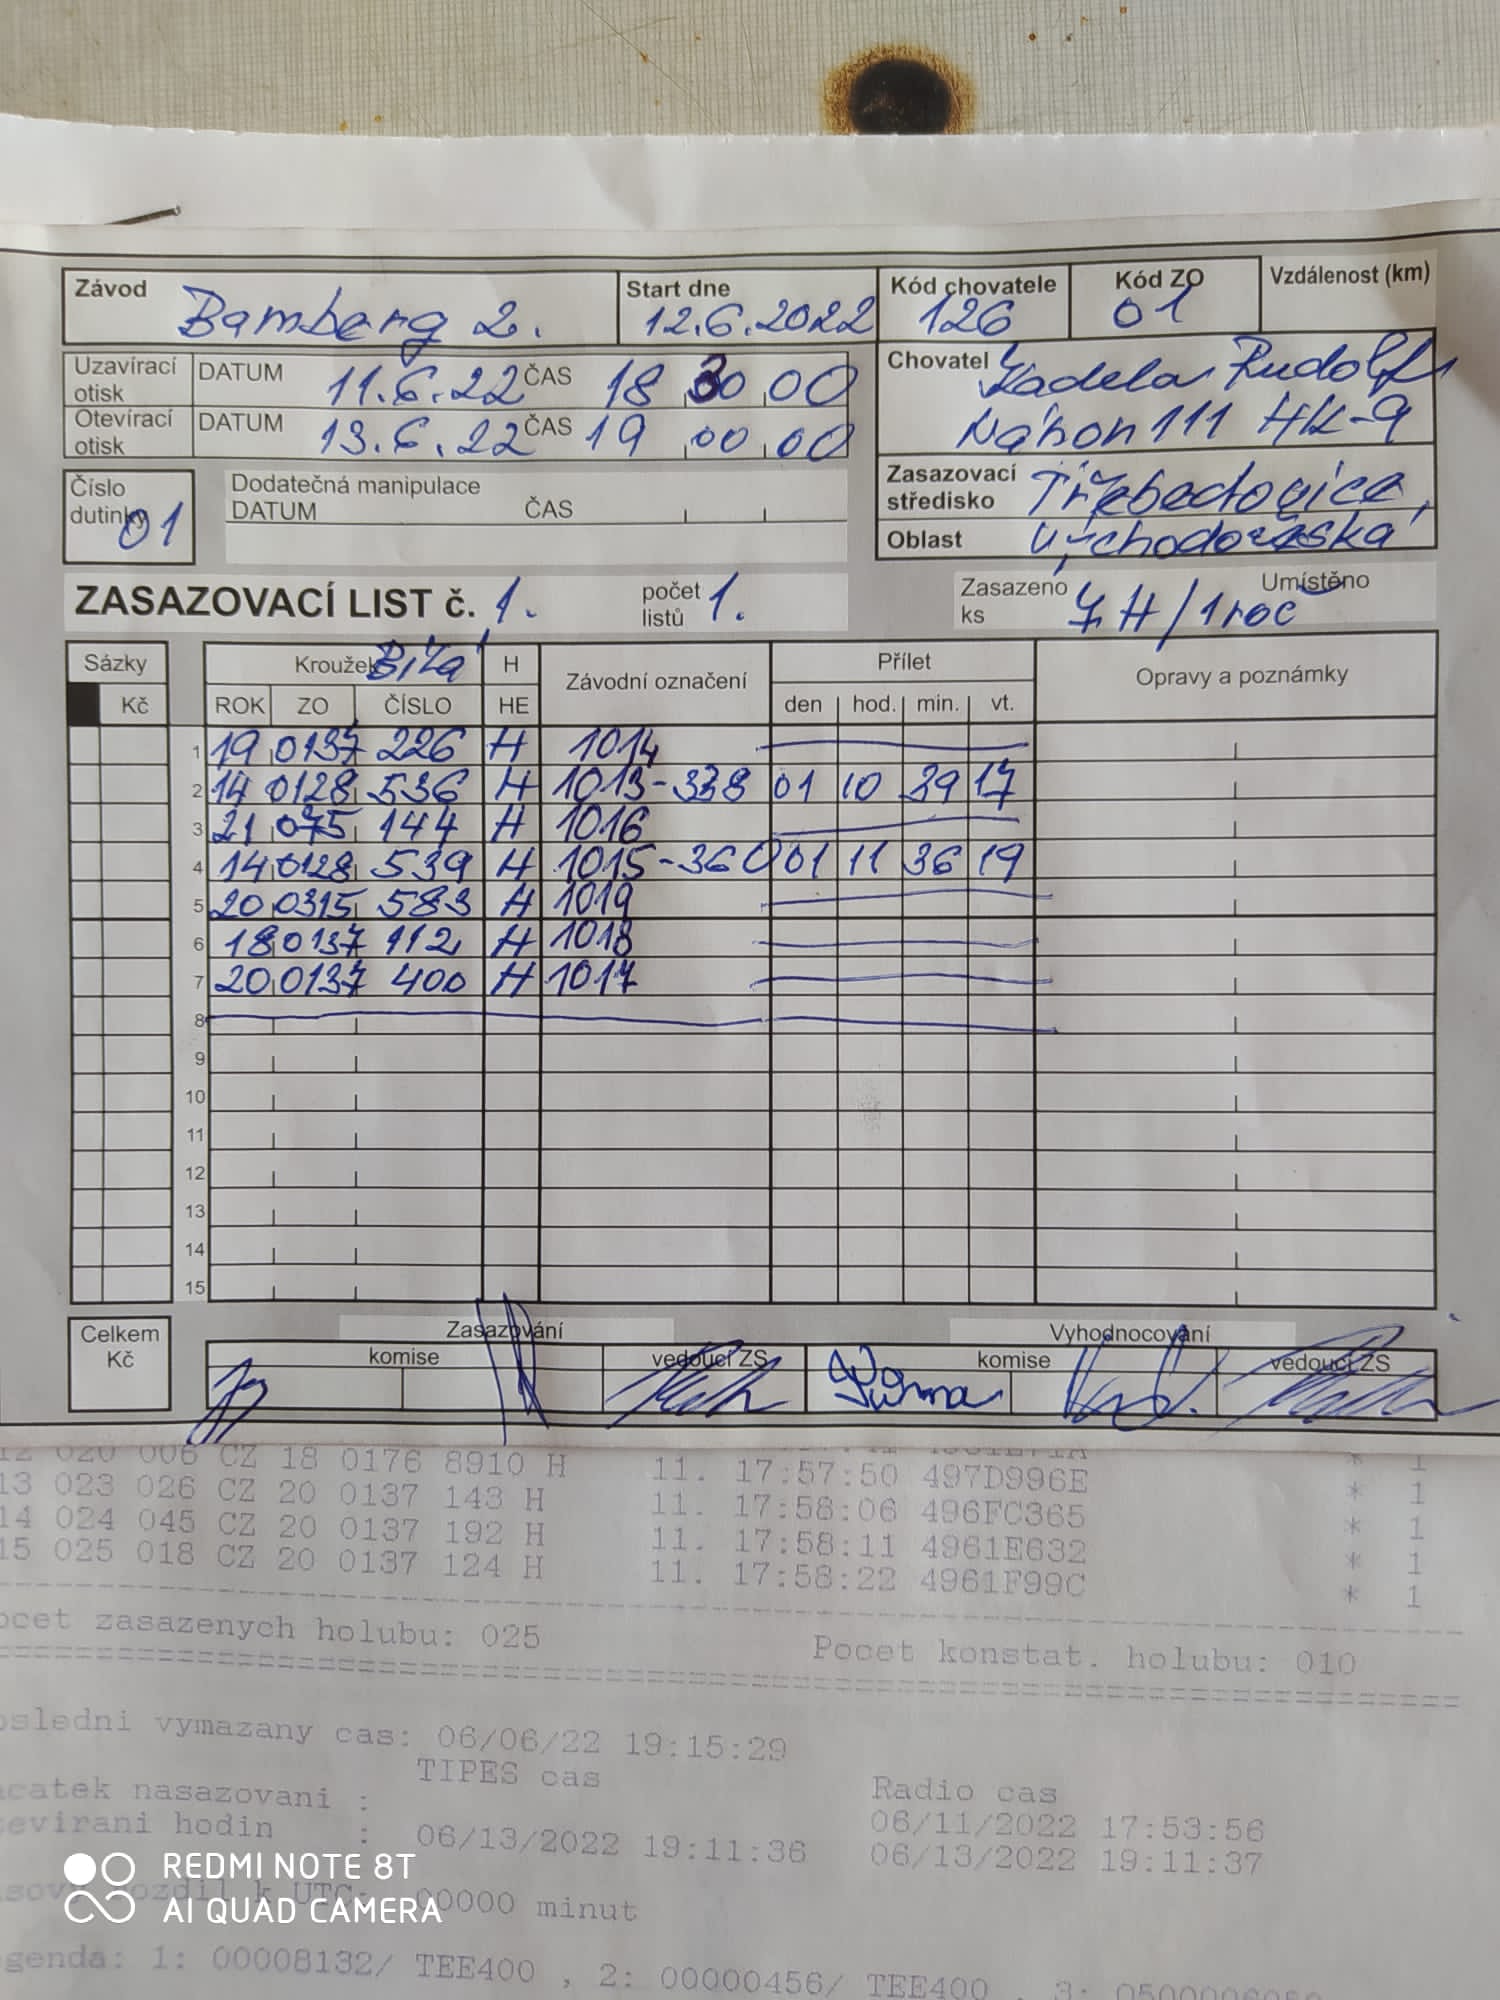 Závod Bamberg 2. Start dne 12.6.2022 Kód chovatele 126 Kód ZO 01 Vzdálenost (km)
Uzavírací otisk DATUM 11.6.22 ČAS 18 30 00
Otevírací otisk DATUM 13.6.22 ČAS 19 00 00
Chovatel Rudolf
Náhon 111 HK-9
Číslo dutinky 01 Dodatečná manipulace
DATUM ČAS
Zasazovací středisko
Oblast Východočeská
ZASAZOVACÍ LIST č. 1. počet listů 1. Zasazeno ks 7 H/1roč Umístěno
Sázky Kroužek Bílá H Závodní označení Přílet Opravy a poznámky
Kč ROK ZO ČÍSLO HE den hod. min. vt.
1 19 0137 226 H 1014
2 14 0128 536 H 1013-338 01 10 39 17
3 21 075 144 H 1016
4 14 0128 539 H 1015-360 01 11 36 19
5 20 0315 583 H 1019
6 18 0137 112 H 1018
7 20 0137 400 H 1017
8
9
10
11
12
13
14
15
Celkem Kč Zasazování Vyhodnocování
komise vedoucí ZS komise vedoucí ZS
12 020 006 CZ 18 0176 8910 H 11. 17:57:50 497D996E * 1
13 023 026 CZ 20 0137 143 H 11. 17:58:06 496FC365 * 1
14 024 045 CZ 20 0137 192 H 11. 17:58:11 4961E632 * 1
15 025 018 CZ 20 0137 124 H 11. 17:58:22 4961F99C * 1
ocet zasazenych holubu: 025 Pocet konstat. holubu: 010
osledni vymazany cas: 06/06/22 19:15:29
TIPES cas Radio cas
acatek nasazovani : 06/11/2022 17:53:56
tevirani hodin : 06/13/2022 19:11:36 06/13/2022 19:11:37
asovy rozdil k UTC: 00000 minut
egenda: 1: 00008132/ TEE400 , 2: 00000456/ TEE400 , 3:
REDMI NOTE 8T
AI QUAD CAMERA